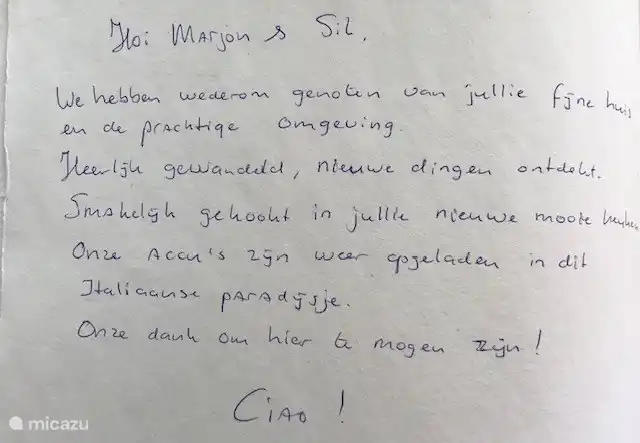 Hoi Marjon & Sil,
We hebben wederom genoten van jullie fijne huis
en de prachtige omgeving.
Heerlijk gewandeld, nieuwe dingen ontdekt.
Smakelijk gekookt in jullie nieuwe mooie keuken
Onze accu's zijn weer opgeladen in dit
Italiaanse paradijsje.
Onze dank om hier te mogen zijn!
Ciao!
micazu